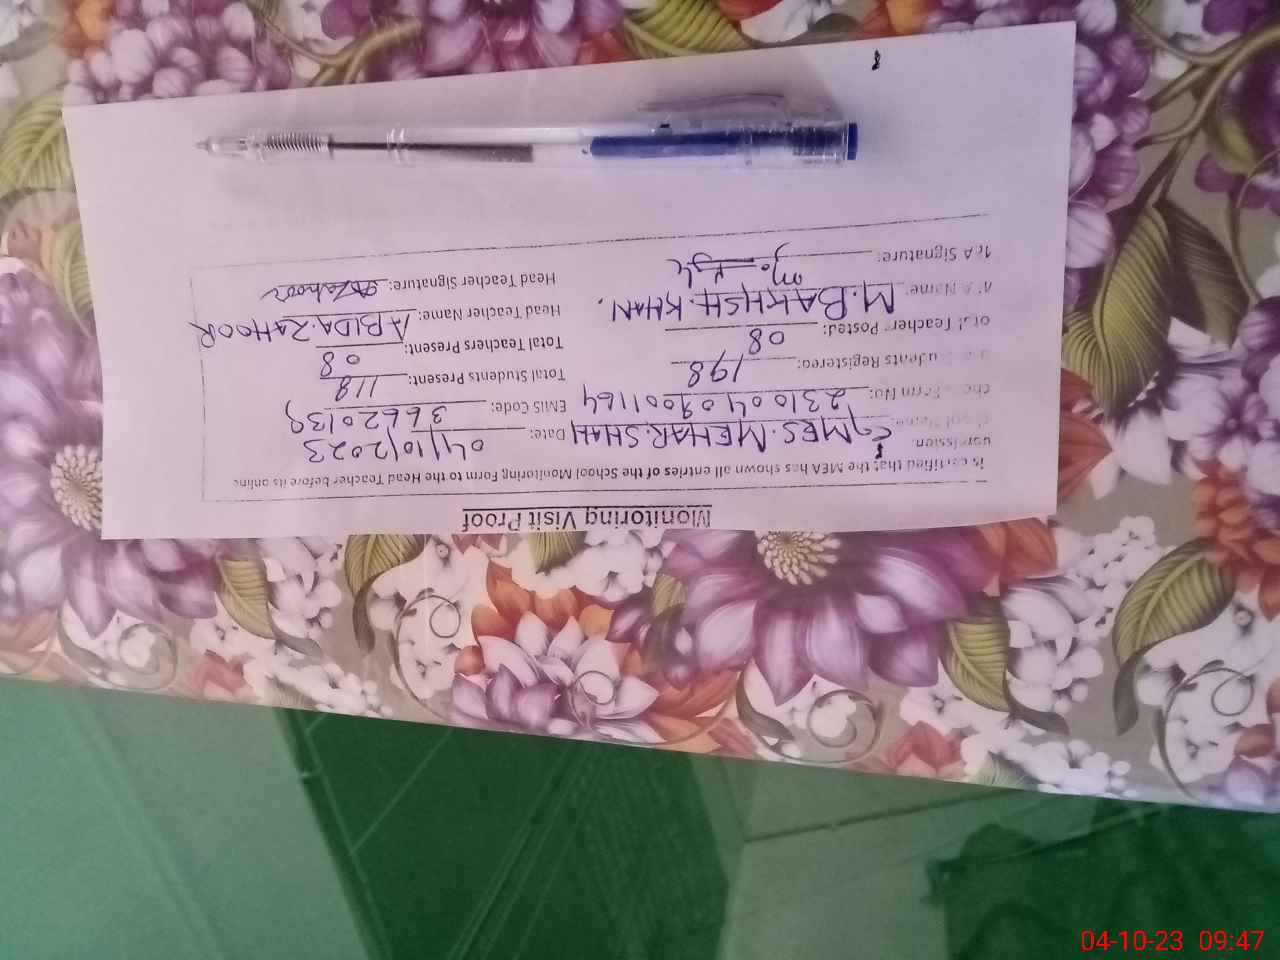 Monitoring Visit Proof
is certified that the MEA has shown all entries of the School Monitoring Form to the Head Teacher before its online
GMES. MEHAR. SHAH Date: 04/10/2023
Form No: 23100409001164 EMIS Code: 36620139
Registered: 198 Total Students Present: 118
Teachers Posted: 08 Total Teachers Present: 08
Name: M. BAKHSH. KHAN. Head Teacher Name: ABIDA. ZAHOOR
Signature: Head Teacher Signature: Zahoor
04-10-23 09:47